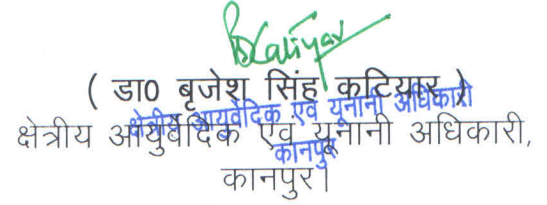 BKatiyar
( डा0 बृजेश सिंह कटियार )
क्षेत्रीय आयुर्वेदिक एवं यूनानी अधिकारी
क्षेत्रीय आयुर्वेदिक एवं यूनानी अधिकारी,
कानपुर
कानपुर।